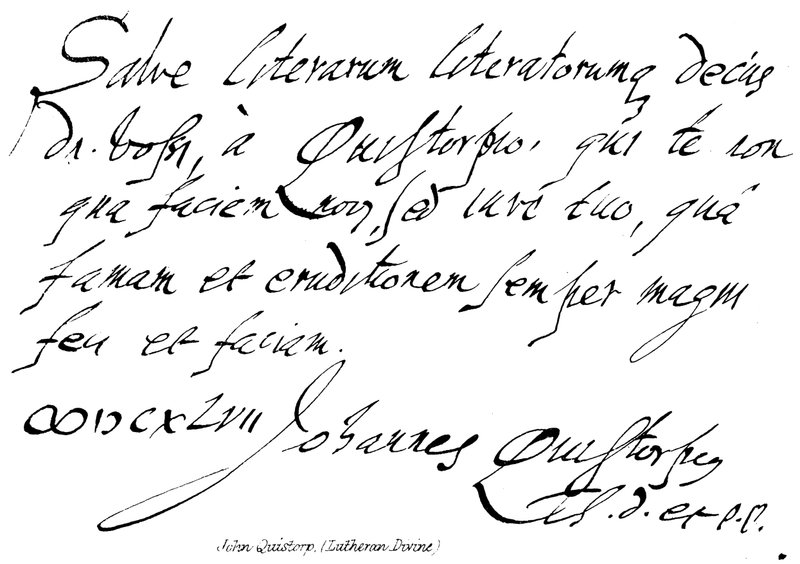 Salve literarum literatorumq decus
dn. Vossi, à Quistorpio, qui te non
qua faciem novi, sed iure tuo, quâ
famam et eruditionem semper magni
feci et faciam.
ↀIↃCXLVII Johannes Quistorpius
Th. d. et p.p.
John Quistorp. (Lutheran Divine)